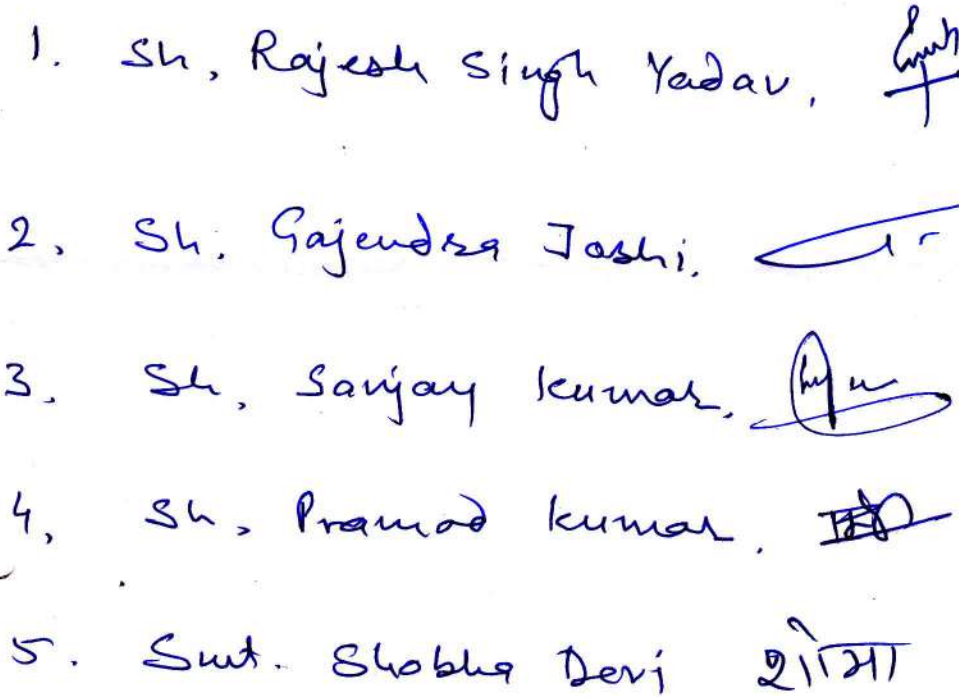 1. Sh, Rajesh Singh Yadav,
2, Sh. Gajendra Joshi.
3. Sh, Sanjay Kumar,
4, Sh, Pramod Kumar.
5. Smt. Shobha Devi शोभा